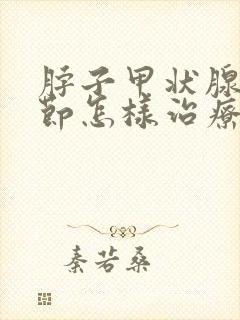 脖子甲状腺
節怎樣治療
秦若桑